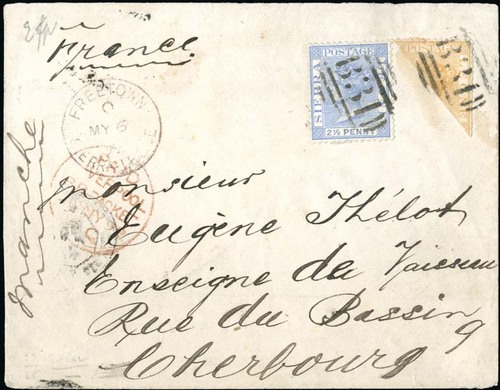 France
FREETOWN
C
MY 6
SIERRA LEONE
SIERRA
POSTAGE
2½ PENNY
B31
POSTAGE
B31
PAID
PACKET
Manche
Monsieur
Eugène Thélot
Enseigne de Vaisseau
Rue du Bassin 9
Cherbourg